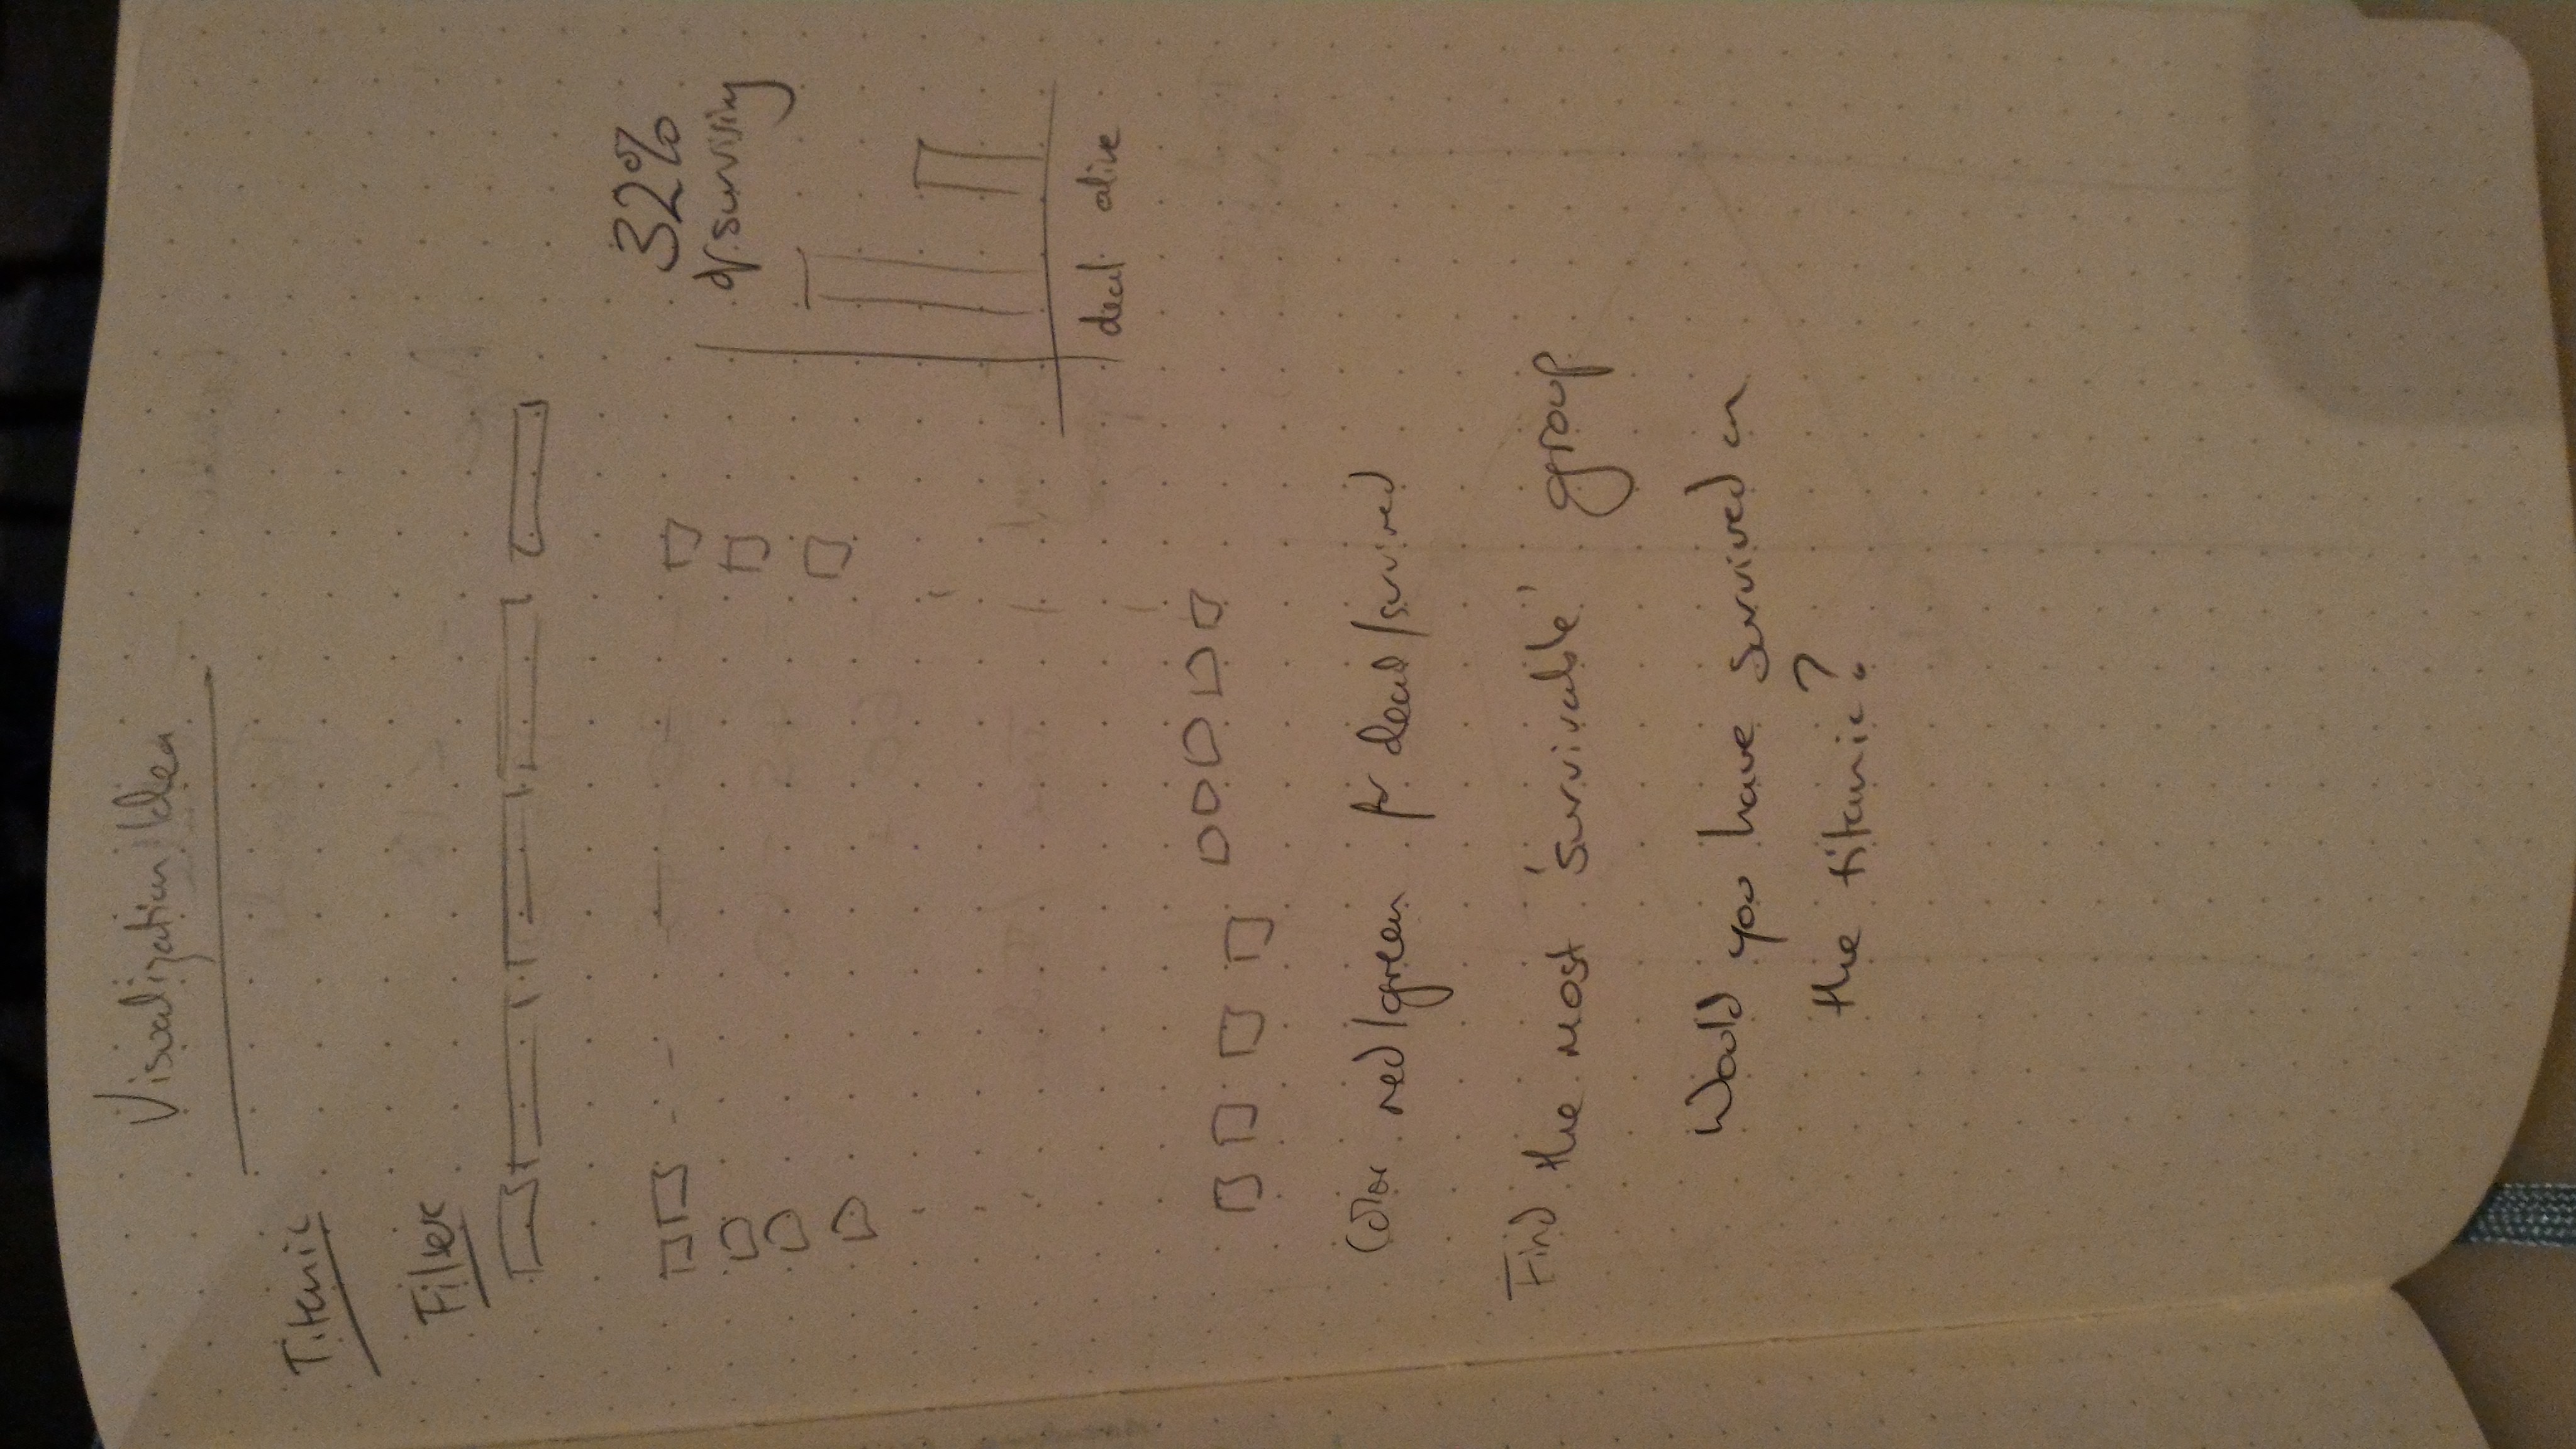 Visualization Idea
Titanic
Filter
32%
of surviving
dead alive
Color red/green for dead/survived
Find the most 'survivable' group
Would you have survived on
the titanic?